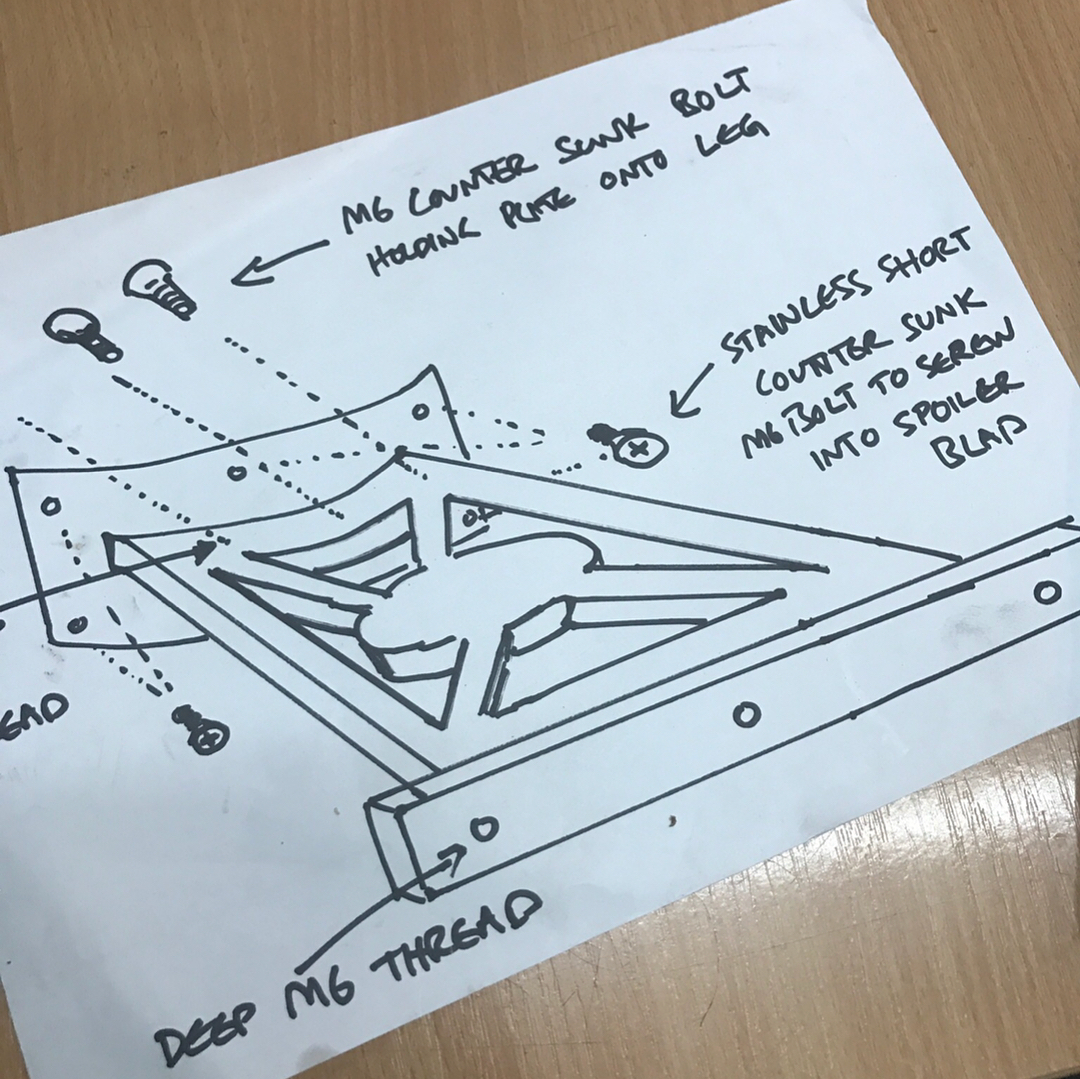 M6 COUNTER SUNK BOLT
HOLDING PLATE ONTO LEG
STAINLESS SHORT
COUNTER SUNK
M6 BOLT TO SCREW
INTO SPOILER
BLAD
EAD
DEEP M6 THREAD